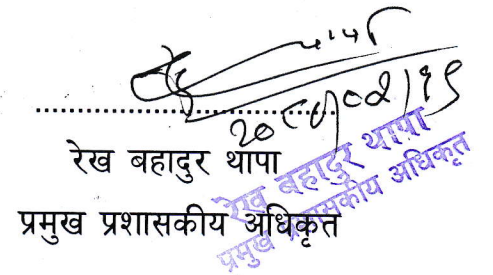 थापा
रेख बहादुर थापा
प्रमुख प्रशासकीय अधिकृत
रेख बहादुर थापा
प्रमुख प्रशासकीय अधिकृत